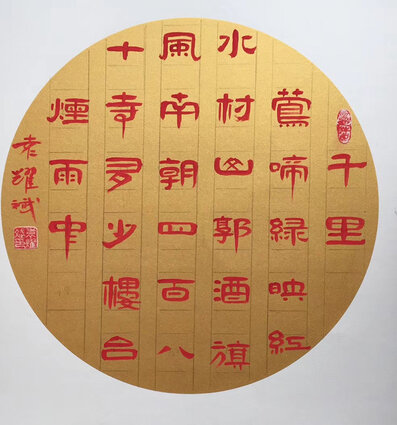 千里
鶯啼緑映紅
水村山郭酒旗
風南朝四百八
十寺多少樓台
煙雨中
袁耀斌